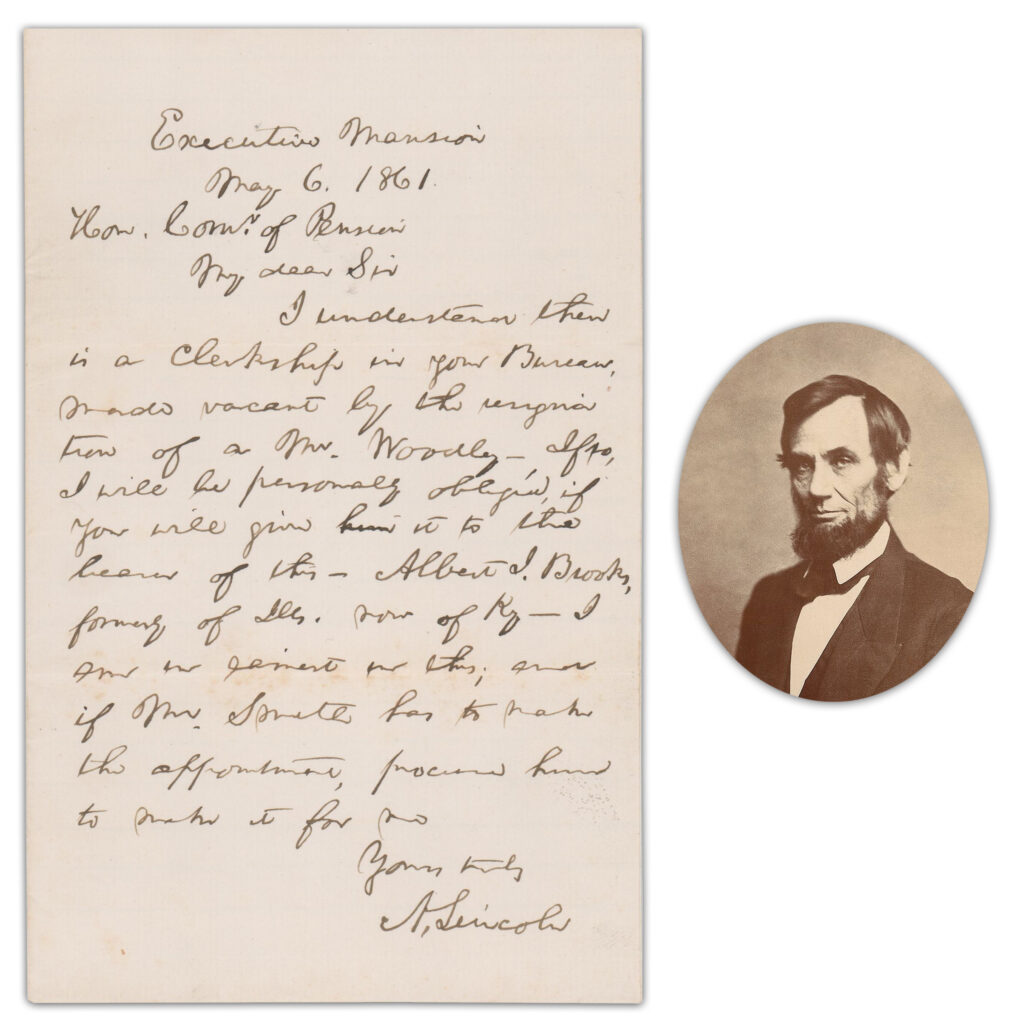 Executive Mansion
May 6. 1861.
Hon. Comr. of Pension
My dear Sir
I understand there
is a Clerkship in your Bureau,
made vacant by the resigna
tion of a Mr. Woodly — If so,
I will be personally obliged, if
you will give him it to the
bearer of this — Albert J. Brooks,
formerly of Ills. now of Ky — I
am in earnest in this; and
if Mr. Smith has to make
the appointment, procure him
to make it for me
Yours truly
A. Lincoln